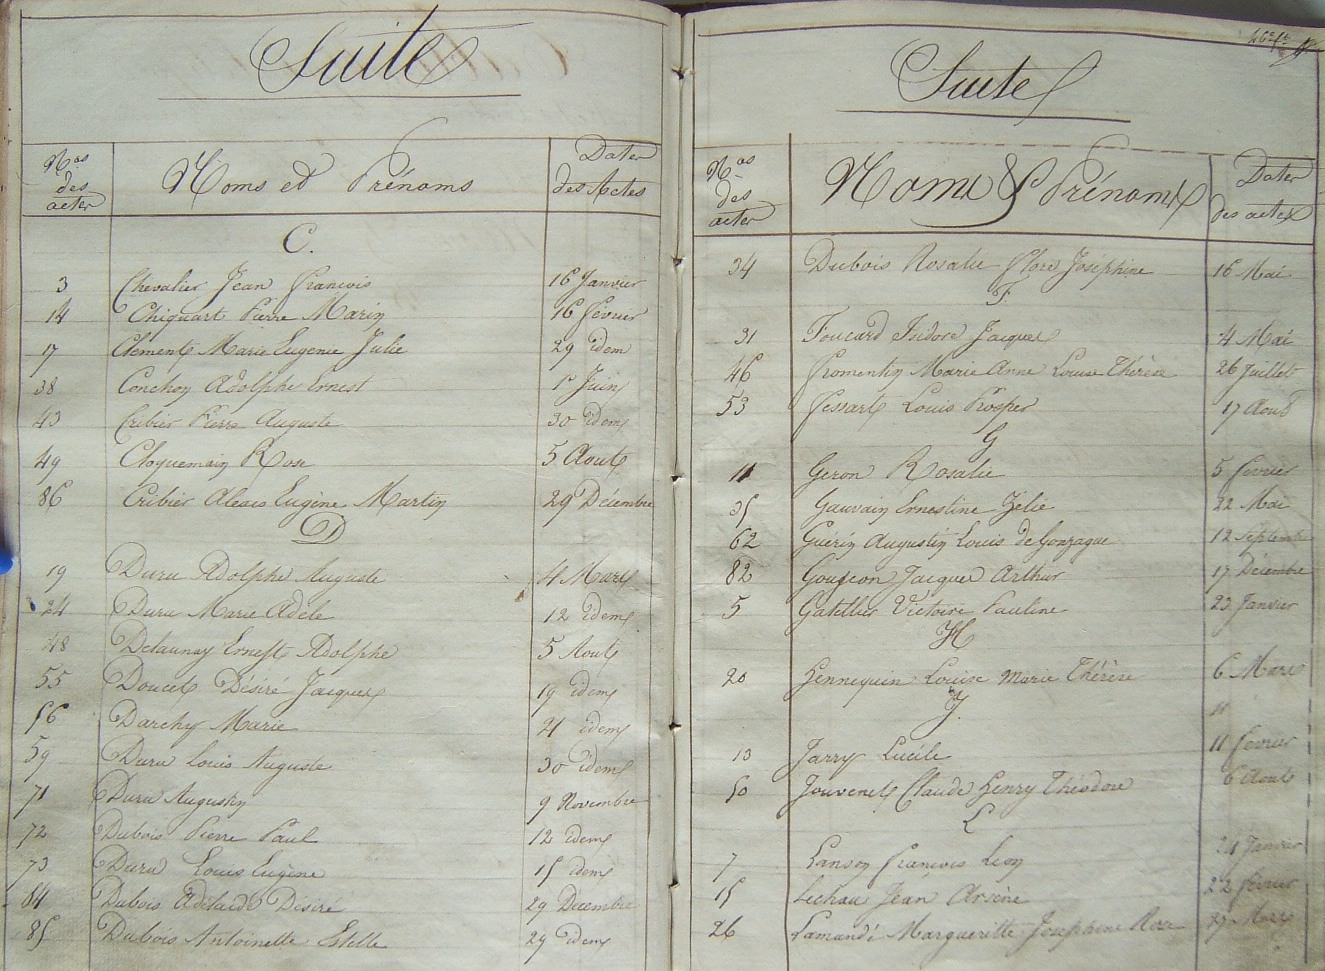 Suite
Nos des actes
Noms et Prénoms
Dates des Actes
C.
3 Chevalier Jean François 16 Janvier
14 Chiquart Pierre Marin 16 Février
17 Clement Marie Eugenie Julie 29 idem
38 Conchon Adolphe Ernest 1r Juin
43 Cribier Pierre Auguste 30 idem
49 Cloquemain Rose 5 Aout
86 Cribier Alexis Eugène Martin 29 Décembre
D
19 Duru Adolphe Auguste 4 Mars
24 Duru Marie Adèle 12 idem
48 Delaunay Ernest Adolphe 5 Aout
55 Doucet Désiré Jacques 19 idem
56 Darchy Marie 21 idem
59 Duru Louis Auguste 30 idem
71 Duru Augustin 9 Novembre
72 Dubois Pierre Paul 12 idem
73 Duru Louis Eugène 15 idem
84 Dubois Adelaide Désiré 29 Décembre
85 Dubois Antoinette Estelle 29 idem
Suite
Nos des actes
Noms & Prénoms
Dates des actes
34 Dubois Rosalie Flore Joséphine 16 Mai
F
31 Foucard Isidore Jacques 4 Mai
46 Fromentin Marie Anne Louise Thérèse 26 Juillet
53 Fessart Louis Prosper 17 Aout
G
11 Geron Rosalie 5 février
35 Gauvain Ernestine Zélie 22 Mai
62 Guérin Augustin Louis de Gonzague 12 Septembre
82 Gougeon Jacques Arthur 17 Décembre
5 Gatellier Victoire Pauline 23 Janvier
H
20 Hennequin Louise Marie Thérèse 6 Mars
J.
13 Jarry Lucile 11 février
50 Jouvenet Claude Henry Théodore 6 Aout
L
7 Lanson François Leon 24 Janvier
15 Lechau Jean Arsène 22 février
26 Lamandé Margueritte Josephine Rose 29 Mars